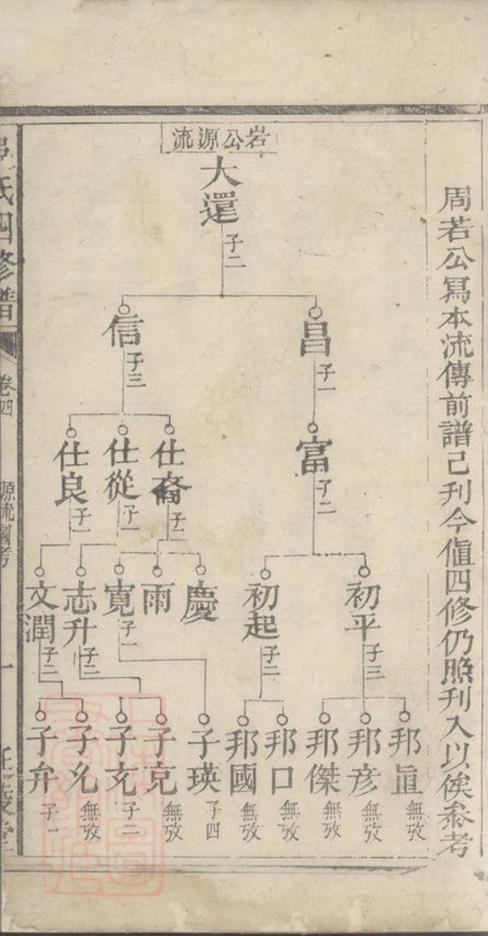 周若公寫本流傳前譜已刋今值四修仍照刋入以俟叅考
岩公源流
大還
子二
昌
子一
信
子三
富
子二
仕裔
子二
仕從
子一
仕良
子一
初平
子三
初起
子二
慶
雨
寬
子一
志升
子二
文潤
子二
邦直
無攷
邦彦
無攷
邦傑
無攷
邦口
無攷
邦國
無攷
子瑛
子四
子克
無攷
子玄
子二
子允
無攷
子弁
子一
氏四修譜
卷四
源流圖考
一